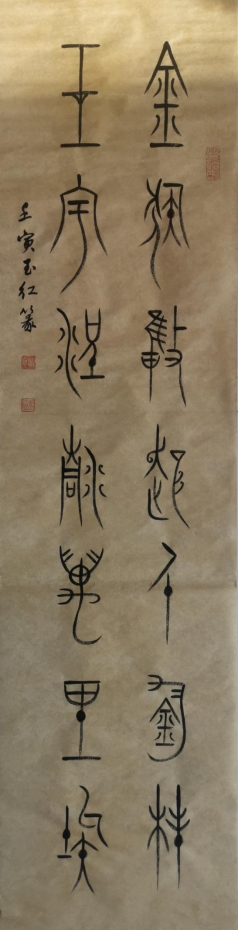 金猴奮起千鈞棒
玉宇澄清萬里埃
壬寅玉红篆